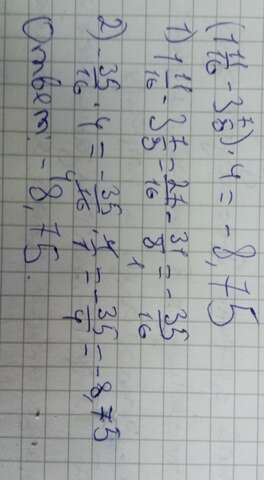 (1 11/16 - 3 7/8) · 4 = - 8,75
1) 1 11/16 - 3 7/8 = 27/16 - 31/8 = - 35/16
2) - 35/16 · 4 = - 35/16 · 4/1 = - 35/4 = - 8,75
Ответ: - 8,75.